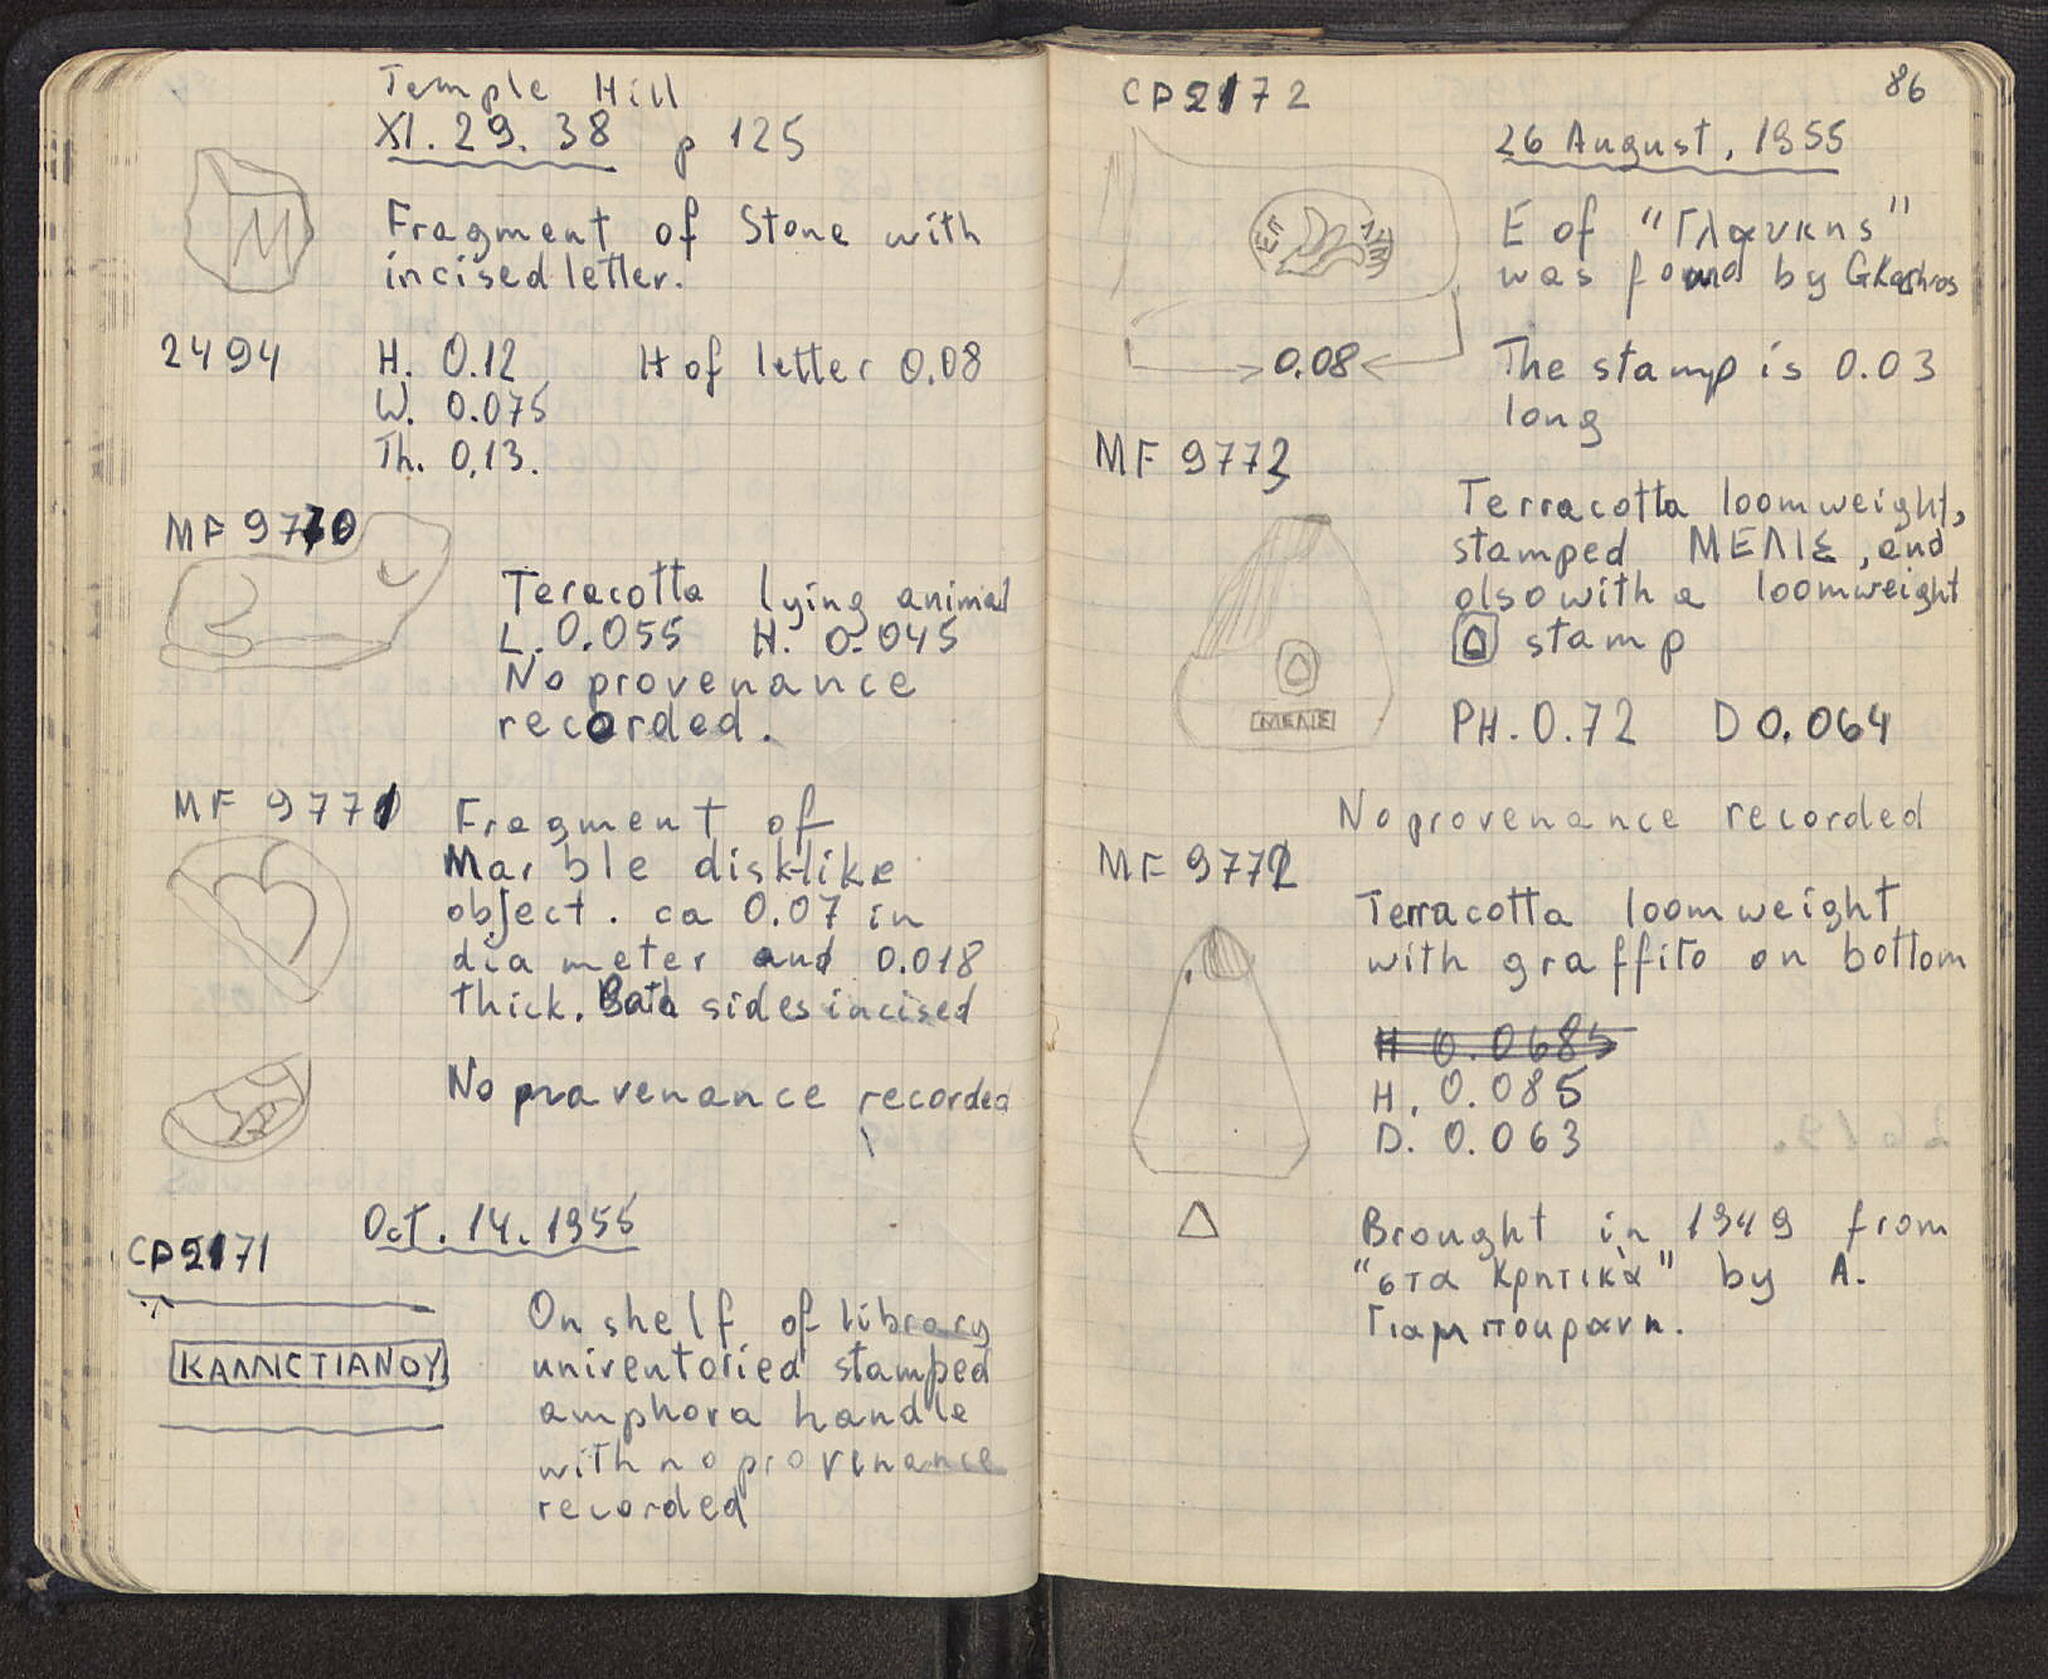 Temple Hill
XI. 29. 38 p 125
M
Fragment of Stone with
incised letter.
2494 H. 0.12 H of letter 0.08
W. 0.075
Th. 0,13.
MF 9770
Teracotta lying animal
L. 0.055 H. 0.045
No provenance
recorded.
MF 9771
Fragment of
Marble disk-like
object. ca 0.07 in
diameter and 0.018
thick. Both sides incised
No provenance recorded
Oct. 14. 1955
CP2171
ΚΑΛΛΙCΤΙΑΝΟΥ
On shelf of library
uninventoried stamped
amphora handle
with no provenance
recorded
86
CP2172
26 August, 1955
ΕΠ
E of "Γλαυκης"
was found by
0.08
The stamp is 0.03
long
MF 9773
Terracotta loomweight,
stamped ΜΕΛΙΣ, and
also with a loomweight
stamp
ΜΕΛΙΣ
PH. 0.72 D 0.064
No provenance recorded
MF 9772
Terracotta loomweight
with graffito on bottom
H 0.0685
H. 0.085
D. 0.063
Δ
Brought in 1949 from
"στα Κρητικά" by A.
Γιαμπουρανη.